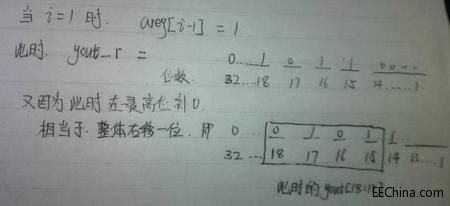 当 i=1 时. areg[i-1] = 1
此时. yout_r = 0....1 0 1 1 0000
位数. 32....18 17 16 15 14......1
又因为此时在最高位补0.
相当于. 整体右移一位. 即 0.... 0 1 0 1 1
32... 18 17 16 15 14 13....1
此时的yout[18:15]
EEChina.com